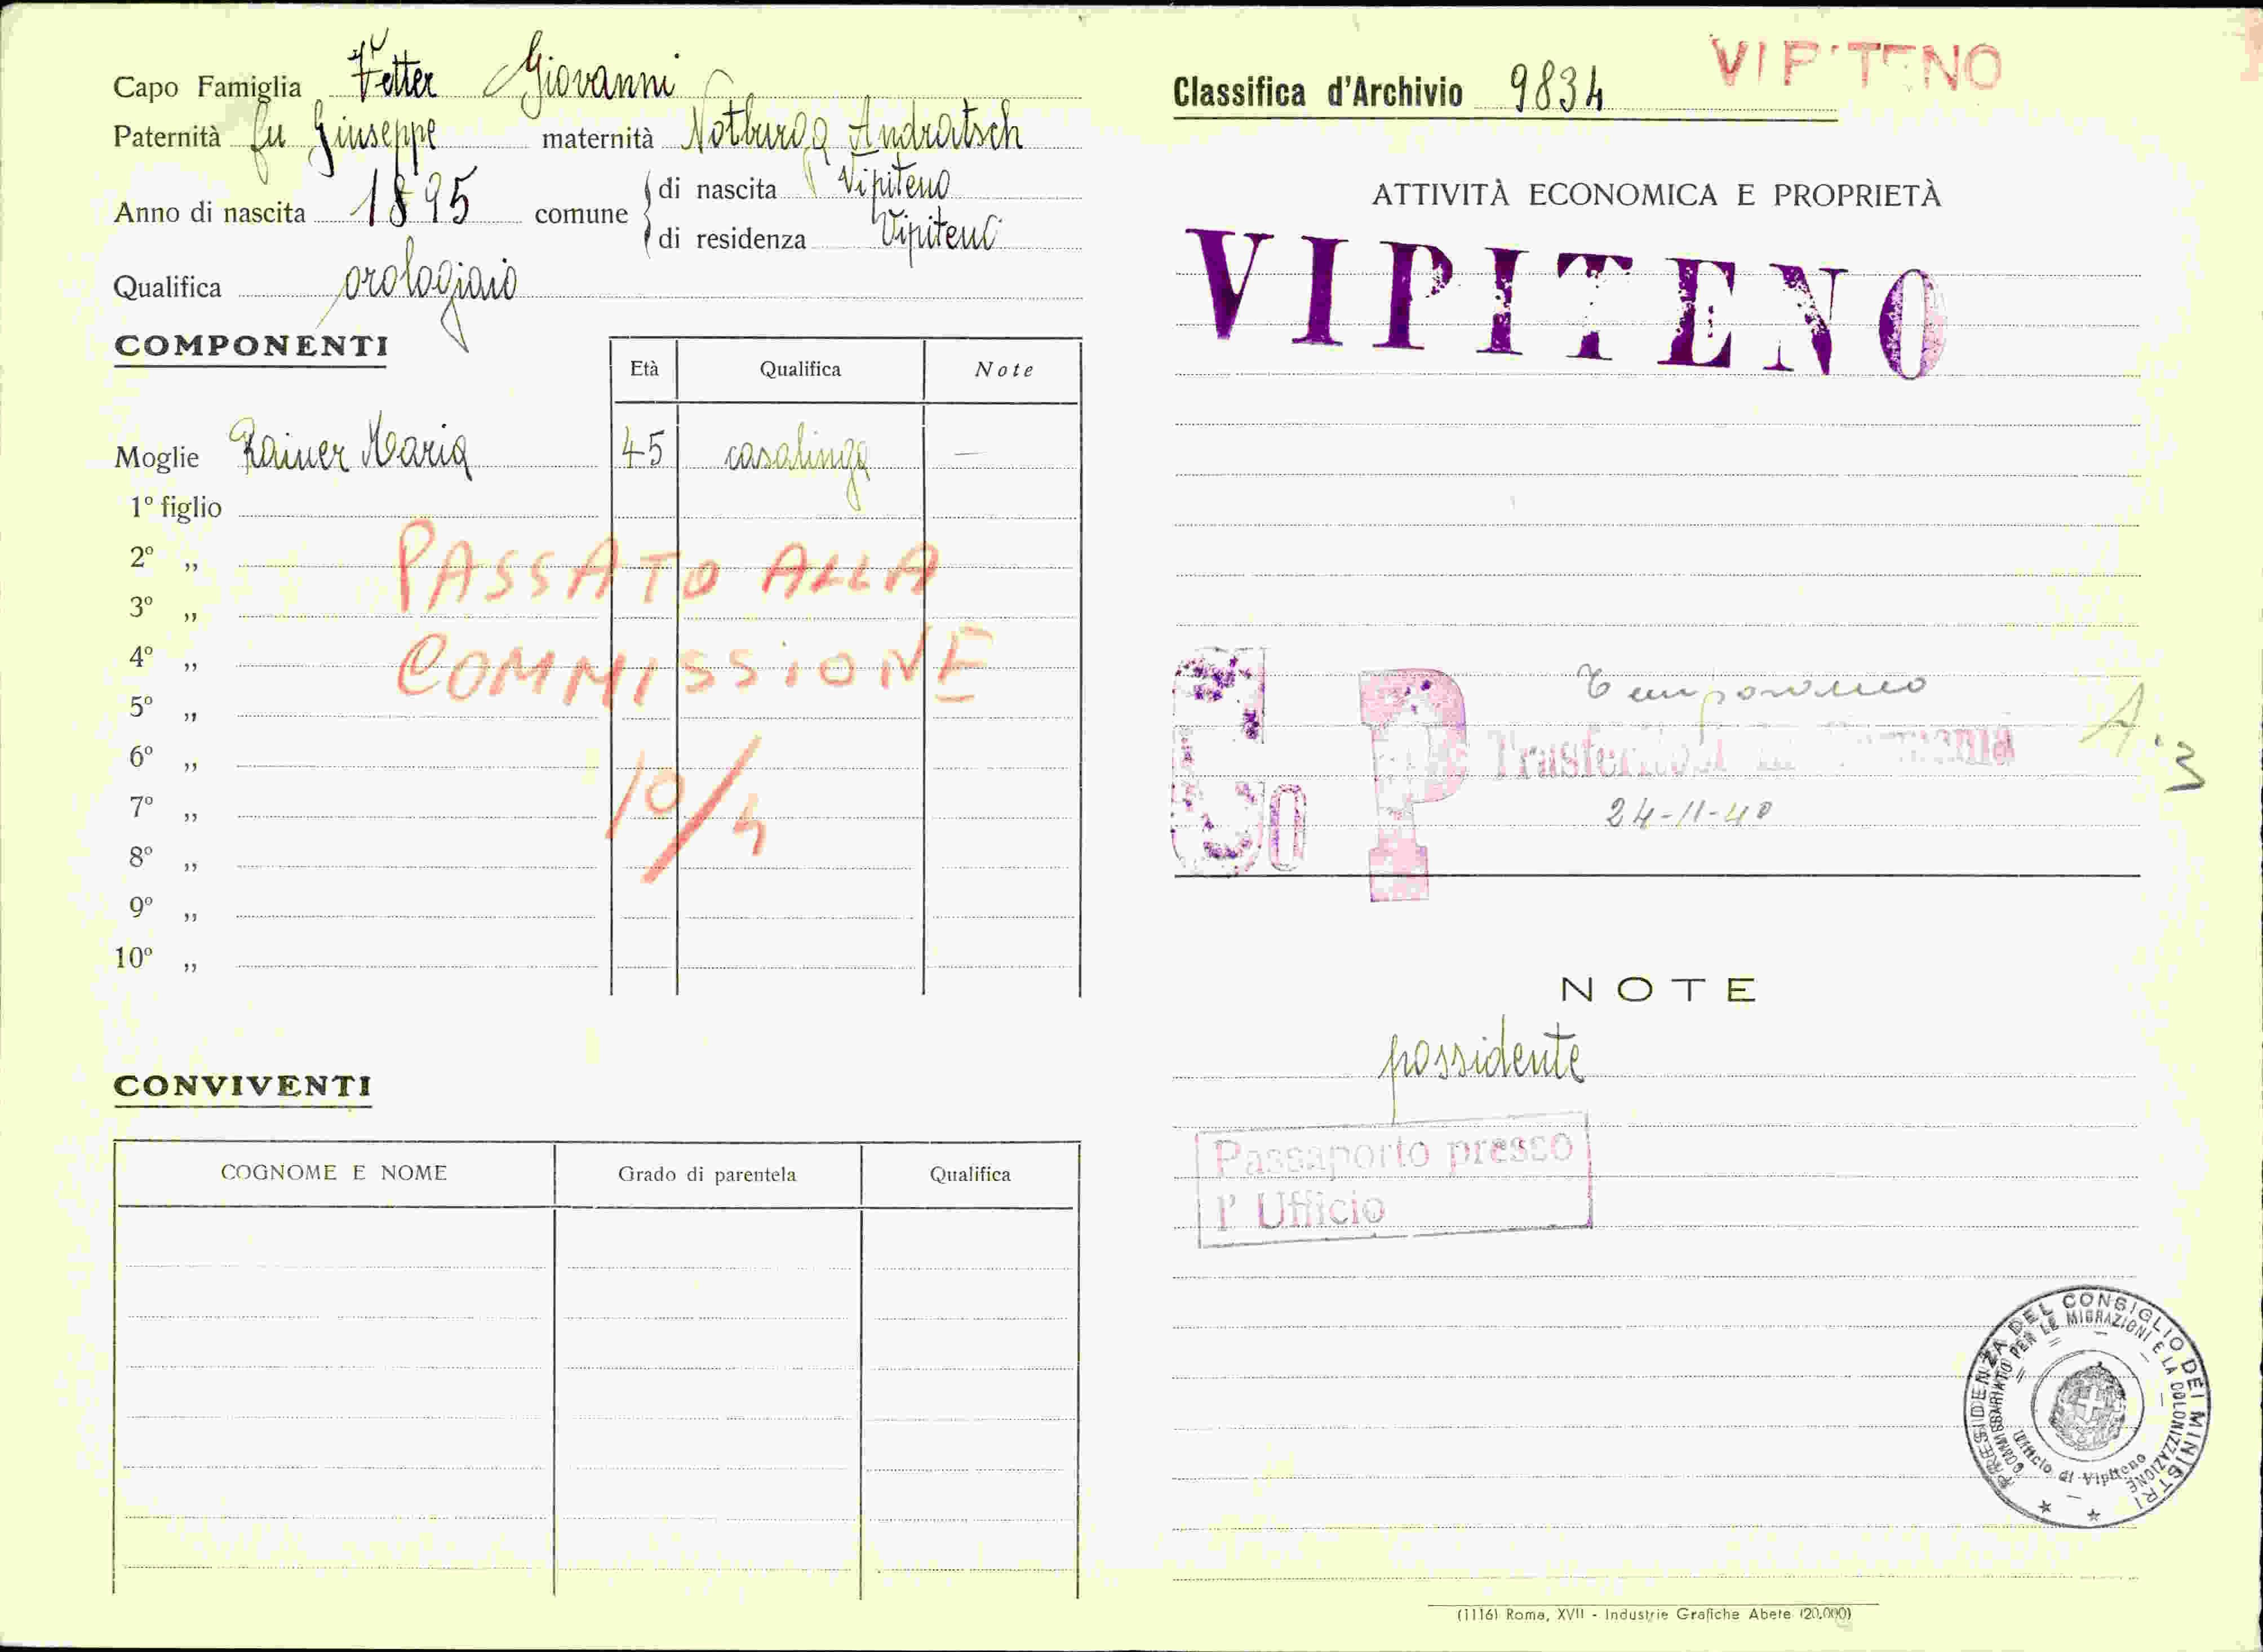 Capo Famiglia Vetter Giovanni
Paternità fu Giuseppe maternità Notburga Andratsch
Anno di nascita 1895 comune di nascita Vipiteno
di residenza Vipiteno
Qualifica orologiaio
COMPONENTI
Età Qualifica Note
Moglie Rainer Maria 45 casalinga —
1º figlio
2º „
3º „
4º „
5º „
6º „
7º „
8º „
9º „
10º „
PASSATO ALLA
COMMISSIONE
10/4
CONVIVENTI
COGNOME E NOME Grado di parentela Qualifica
VIPITENO
Classifica d'Archivio 9834
ATTIVITÀ ECONOMICA E PROPRIETÀ
VIPITENO
P
A.3
24-11-40
NOTE
possidente
Passaporto presso
l' Ufficio
PRESIDENZA DEL CONSIGLIO DEI MINISTRI
COMMISSARIATO PER LE MIGRAZIONI E LA COLONIZZAZIONE
Ufficio di Vipiteno
(1116) Roma, XVII - Industrie Grafiche Abete (20.000)